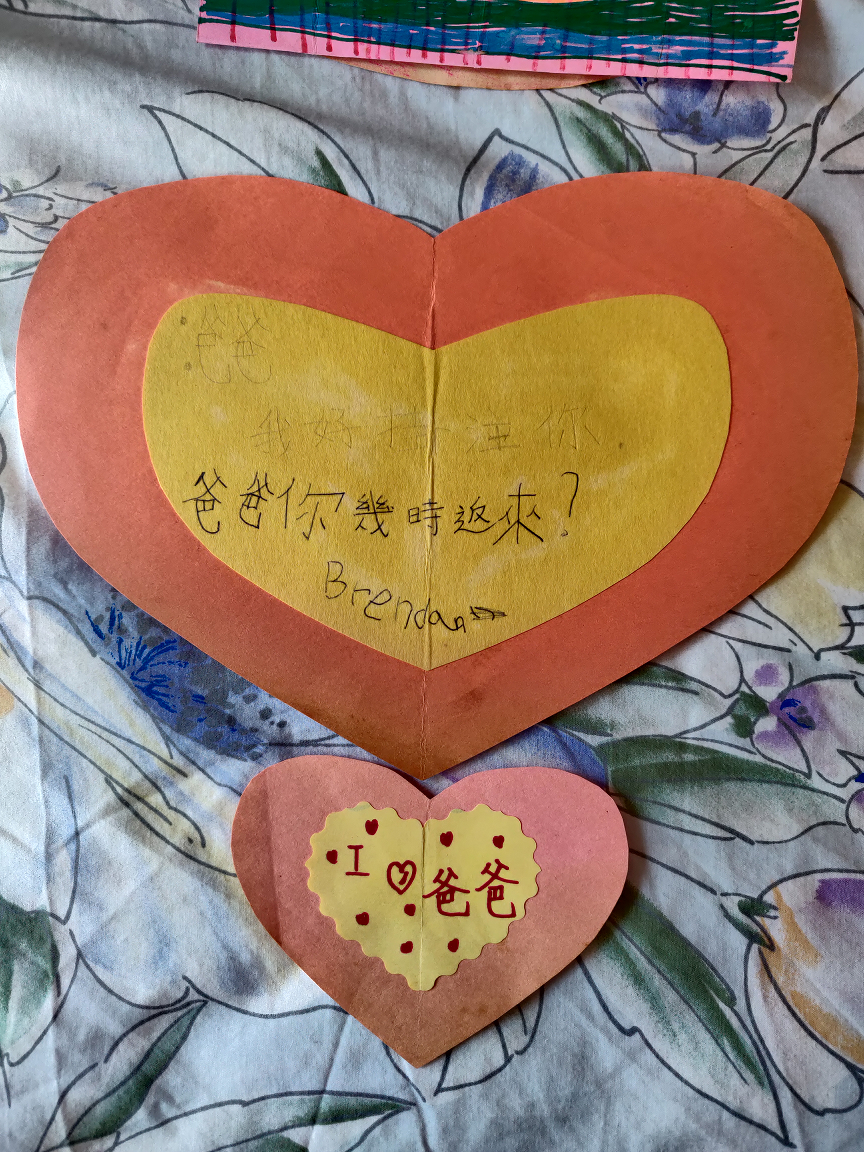 爸爸
我好掛住你
爸爸你幾時返來?
Brenda
I ♡ 爸爸